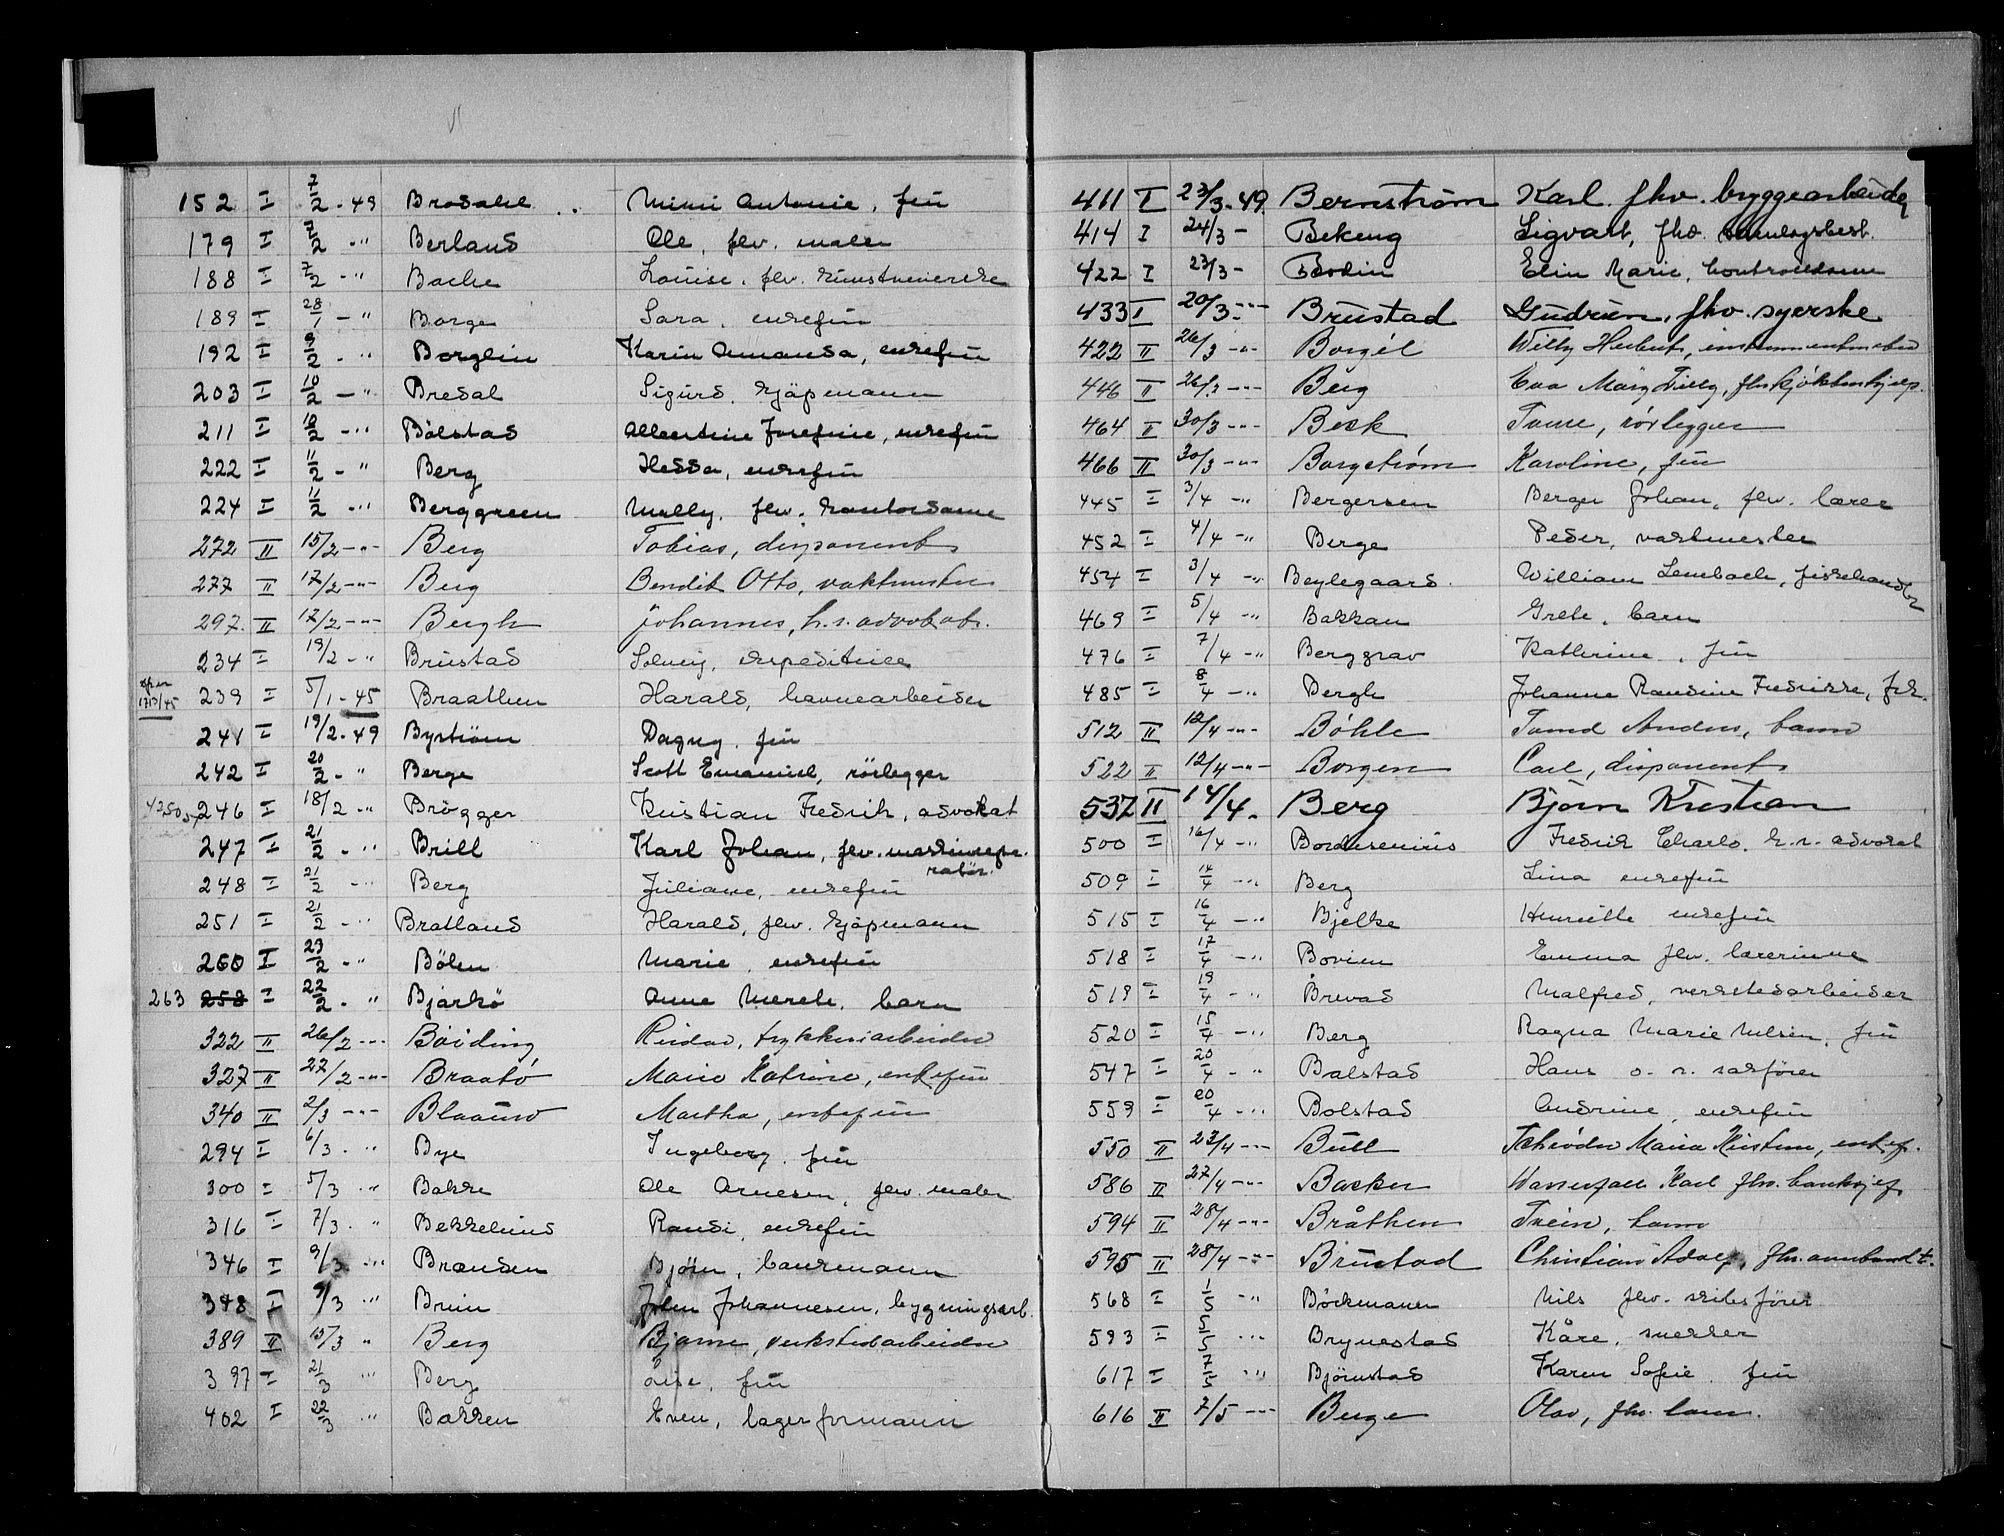 152 I 7/2 - 49 Brodahl Mimi Antonie, frü
179 I 7/2 - " Berland Ole, fhv. maler
188 I 7/2 - " Bache Louise, fhv.
189 I 28/1 - " Borge Sara, enkefrü
192 I 9/2 - " Borglin Karin Amanda, enkefrü
203 I 10/2 - " Bredal Sigurd, kjøpmann
211 I 10/2 - " Bølstad Albertine Josefine, enkefrü
222 I 11/2 - " Berg Hedda, enkefrü
224 I 11/2 - " Berggreen Molly, fhv. kontordame
272 II 15/2 - " - Berg Tobias, disponent
277 II 17/2 - " - Berg Bendik Otto, vaktmester
297. II 17/2 - " - Bergh Johannes, h.r. advokat.
234 I 19/2 - " Brüstad Solveig, expeditrice
17/3/45 239 I 5/1 - 45 Braathen Harald, havnearbeider
241 I 19/2 - 49 Byström Dagny, frü
242 I 20/2 - " Berge Scott Emanuel, rörlegger
246 I 18/2 - " Brøgger Kristian Fredrik, advokat
247 I 21/2 - " Brill Karl Johan, fhv. maskinrepa-
ratør.
248 I 21/2 - " Berg Juliane, enkefrü
251 I 21/2 - " Bratland Harald, fhv. kjøpmann
260 I 23/2 - " Bølen Marie, enkefrü
263 258 I 22/2 - " Bjørkø Anne Merete, barn
322 II 26/2 - " - Böiding Reidar, trykkeriarbeider
327 II 27/2 - " - Braatø Marie Katrine, enkefrü
340 II 2/3 - " - Blaauw Martha, enkefrü
294 I 6/3 - " Bye Ingeborg, frü
300 I 5/3 " Bakke Ole Arnesen, fhv. maler
316 I 7/3 - " Bekkelund Randi, enkefrü
346 I 9/3 - " Brandsen Bjørn, bankmann
348 I 9/3 " Brün John Johannesen, bygningsarb.
389 II 15/3 " Berg Bjarne, verkstedarbeider
397 I 21/3 " Berg Åse, frü
402 I 22/3 " Bakken Even, lagerformann
411 I 23/3 - 49. Bernstrøm Karl. fhv. byggearbeider
414 I 24/3 - Bekeng Sigvart, fhv.
422 I 23/3 - Bodin Elin Marie, kontordame
433 I 20/3 - " - Brüstad Gudrün, fhv. syerske
422 II 26/3 - " - Borgél Willy Herbert, instrumentmaker
446 II 26/3 - " - Berg Eva Mary Tilly, fhv kjøkkenhjelp.
464 II 30/3 - " - Besk Tome, rørlegger
466 II 30/3 - " - Borgstrøm Karoline, frü
445 I 3/4 - " Bergersen Berger Johan, fhv. lærer
452 I 4/4 - " Berge Peder, vaktmester
454 I 3/4 - " Beylegaard. William Lembach, fiskehandler
469 I 5/4 - " Bakkan Grete, barn
476 I 7/4 - " Berggrav Kathrine, frü
485 I 8/4 - " Bergh Johanne Randine Fredrikke, frk.
512 II 12/4 - " - Bøhle Trond Anders, barn
522 II 12/4 - " - Borgen Carl, disponent
537 II 14/4. - Berg Bjørn Kristian
500 I 16/4 - " Fredrik Charlo. h.r. advokat
509 I 14/4 - " Berg Lina enkefrü
515 I 16/4 - " Bjelke Henriette enkefrü
518 I 17/4 - " Bovien Emma fhv. lærerinne
519 I 19/4 - " Brevad Malfred, verkstedarbeider
520 I 15/4 - " Berg Ragna Marie Nilsen, frü
547 I 20/4 - " Balstad Hans o. r. sakfører
559 I 20/4 - " Bolstad Andrine, enkefrü
550 II 23/4 - " - Büll Maria Kristine, enkef.
586 II 27/4 - " - Backer Karl fhv. banksjef
594 II 28/4 - " - Bråthen Svein, barn
595 II 28/4 - " - Brüstad Christian Adolf, fhv.
568 I 1/5 " Böckmann Nils fhv. skibsfører
593 I 5/5 " Brynestad Kåre, snekker
617 I 7/5 " Bjørnstad Karen Sofie. frü
616 II 7/5 - " - Berge Olav, fhv.